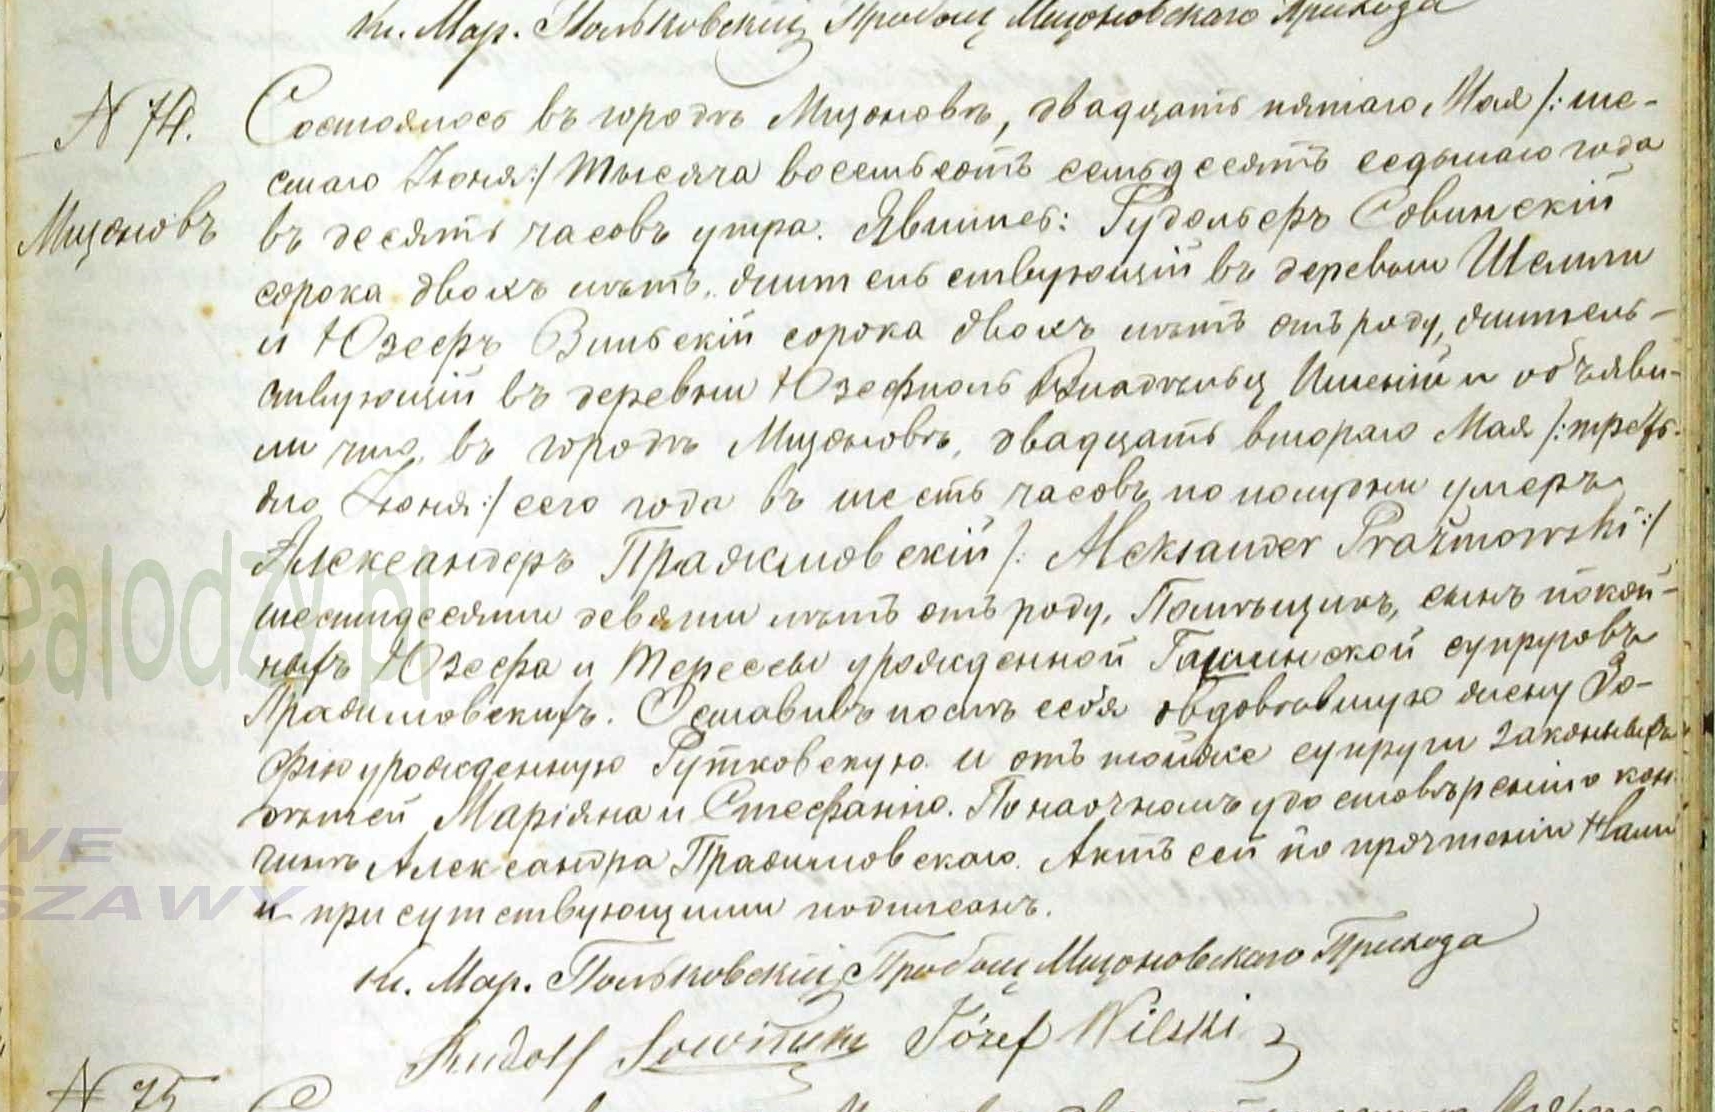 Кс. Мар. Польковскій Пробощ Мщоновскаго Прихода
N 74.
Мщоновъ
Состоялось въ городѣ Мщоновѣ, двадцать пятаго Мая /: ше-
стаго Іюня :/ тысяча восемьсотъ семьдесятъ седьмаго года
въ десять часовъ утра. Явились: Рудольфъ Совинскій
сорока двохъ лѣтъ, жительствующій въ деревни
и Юзефъ Вильскій сорока двохъ лѣтъ отъ роду, житель-
ствующій въ деревни Юзефполь Владѣльцы Имѣній и объяви-
ли что, въ городѣ Мщоновѣ, двадцать втораго Мая /: треть-
яго Іюня :/ сего года въ шесть часовъ по полудни умеръ
Александеръ Пражмовскій /: Aleksander Prażmowski :/
шестидесяти девяти лѣтъ отъ роду, Помѣщикъ, сынъ покой-
ныхъ Юзефа и Терессы урожденной супруговъ
Пражмовскихъ. Оставивъ послѣ себя овдовѣвшую жену Зо-
фію урожденную Рутковскую и отъ тойже супруги законныхъ
дѣтей Маріяна и Стефанію. По наочномъ удостовѣреніи о кон-
чинѣ Александра Пражмовскаго. Актъ сей по прочтеніи Нами
и присутствующими подписанъ.
Кс. Мар. Польковскій Пробощ Мщоновскаго Прихода
Rudolf Sowiński Józef Wilski
N 75
ealodzy.pl
WE
SZAWY